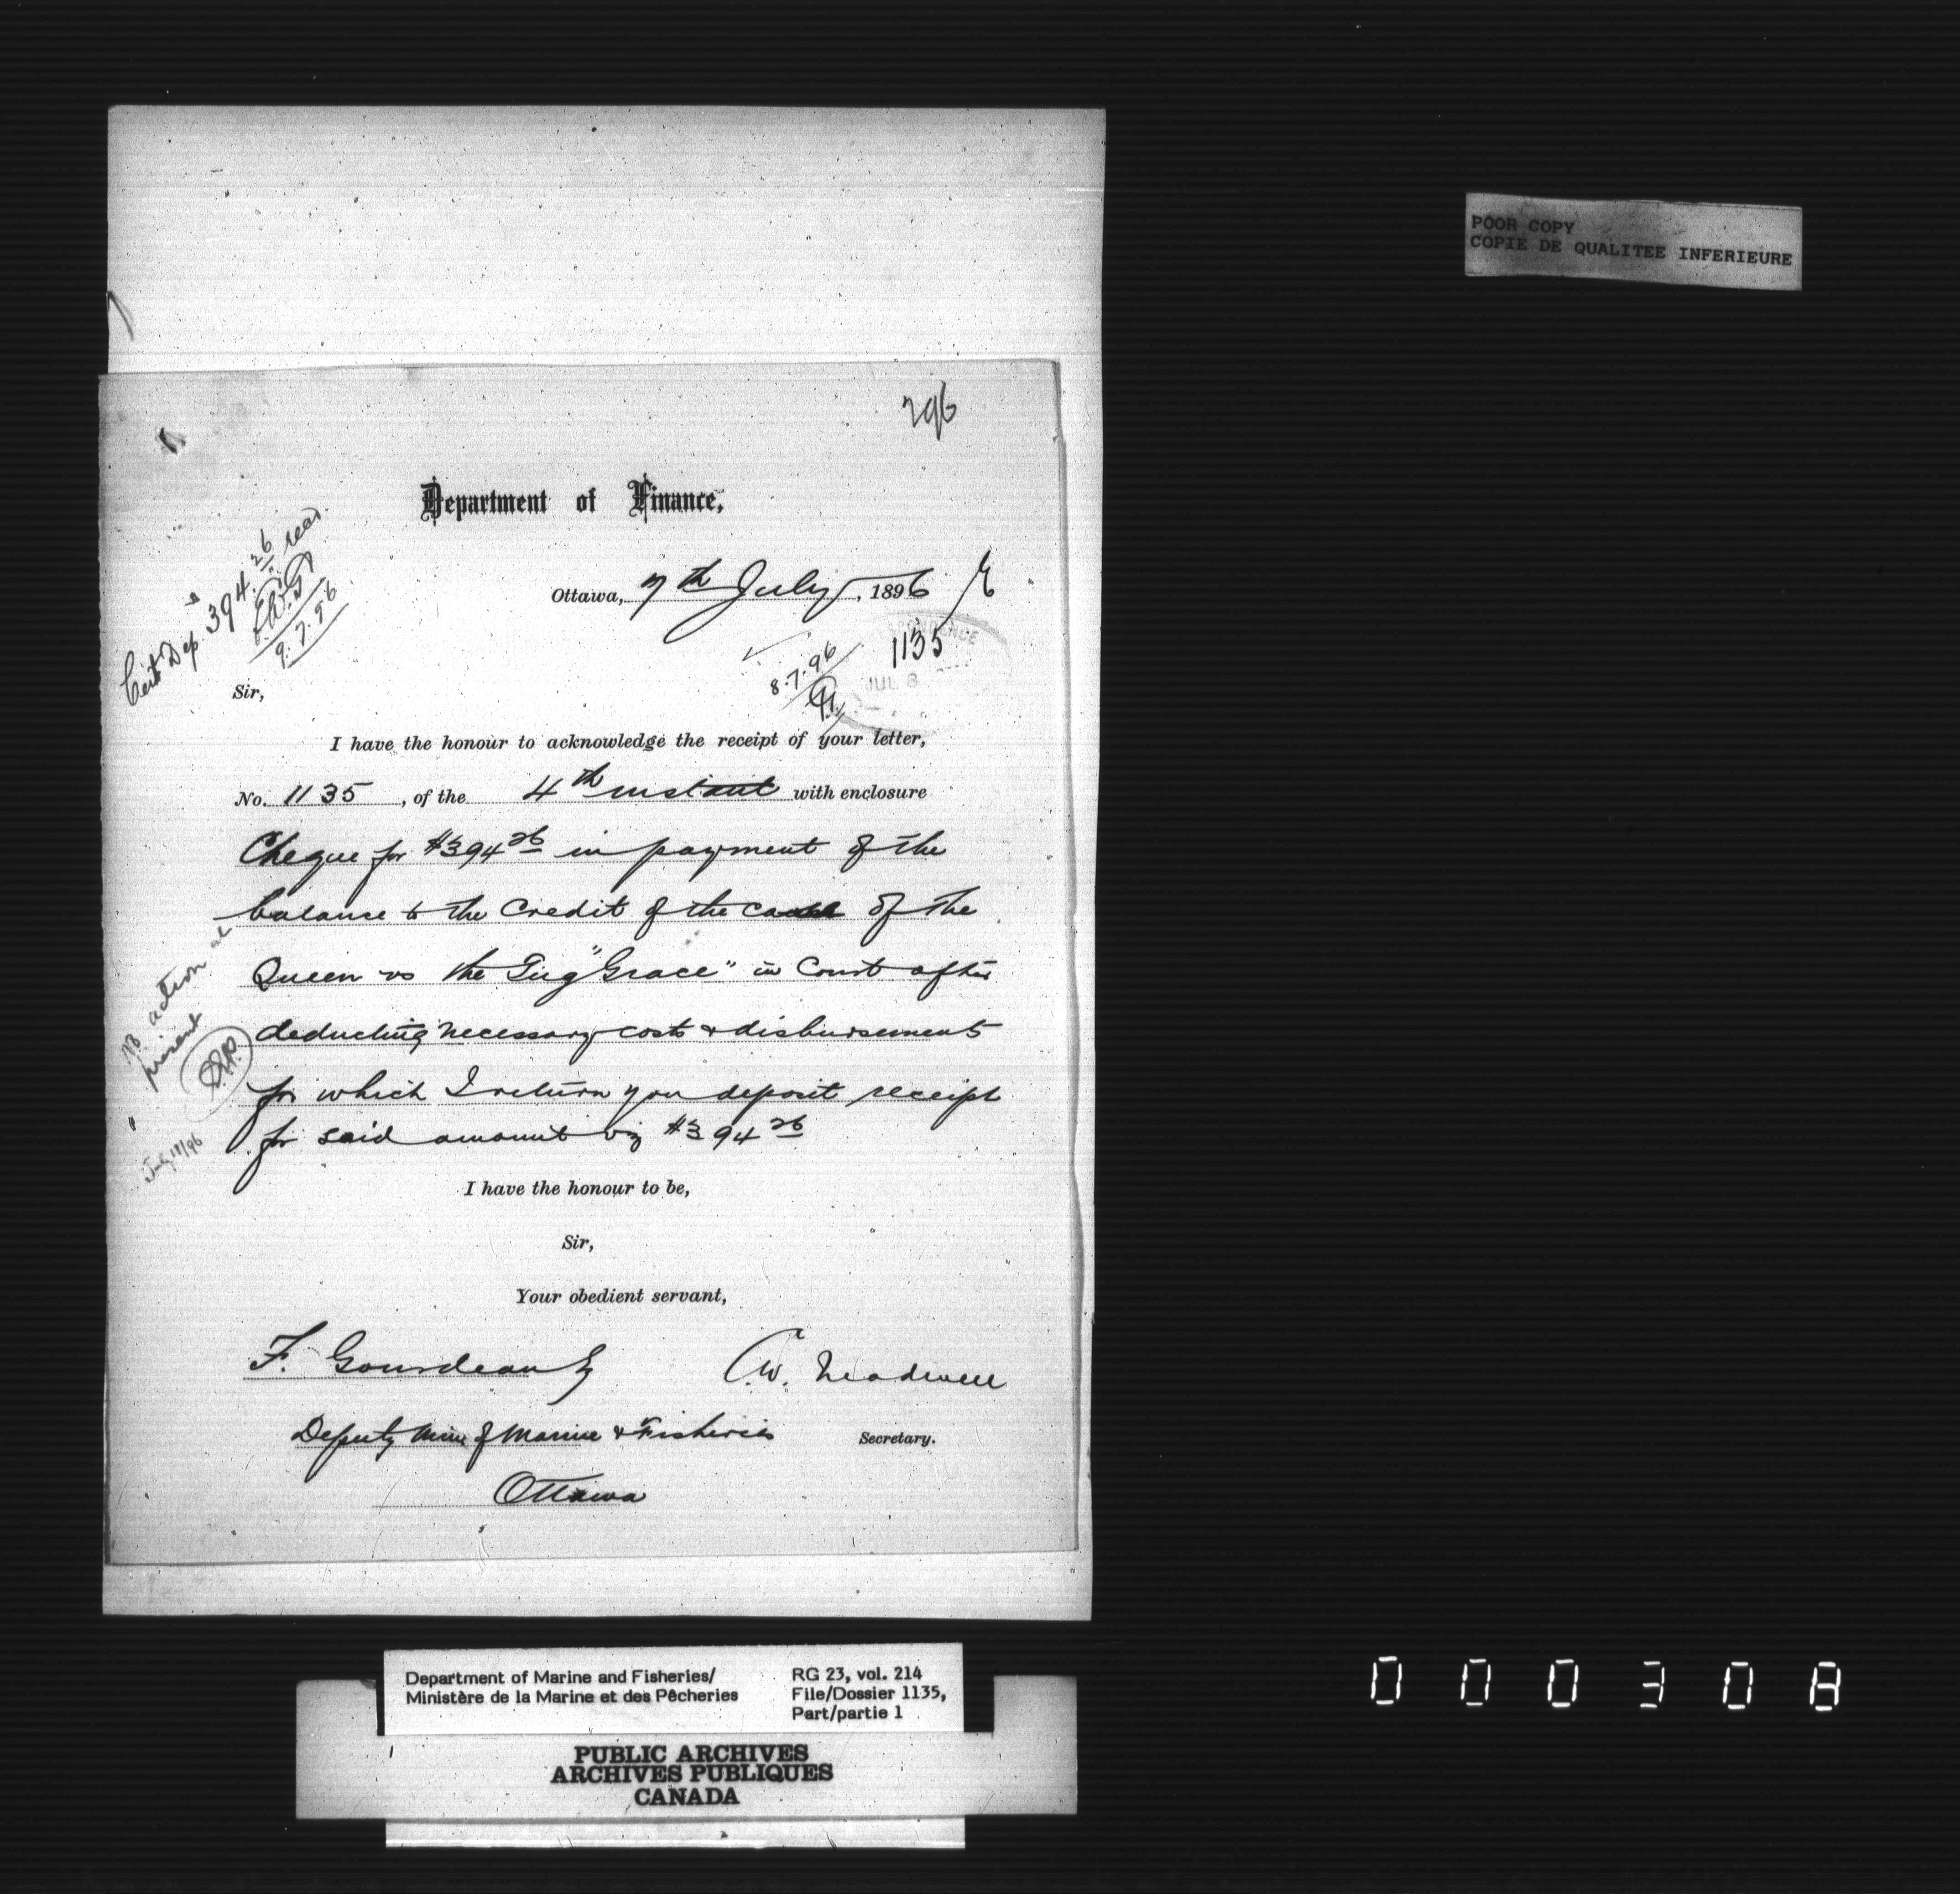 POOR COPY
COPIE DE QUALITEE INFERIEURE
296
Department of Finance,
Cert Dep. 394.26 recd.
9.7.96
Ottawa, 7th July, 1896
1135
JUL 8
8.7.96
Sir,
I have the honour to acknowledge the receipt of your letter,
No. 1135, of the 4th instant with enclosure
Cheque for $394 26 in payment of the
balance to the Credit of the case of the
Queen vs the Tug "Grace" in Court after
deducting necessary costs & disbursements
for which I return you deposit receipt
for said amount viz $394 26
action at
present
July 18/96
I have the honour to be,
Sir,
Your obedient servant,
F. Gourdeau
Deputy Min of Marine & Fisheries
Secretary.
Ottawa
Department of Marine and Fisheries/
Ministère de la Marine et des Pêcheries
RG 23, vol. 214
File/Dossier 1135,
Part/partie 1
PUBLIC ARCHIVES
ARCHIVES PUBLIQUES
CANADA
000308